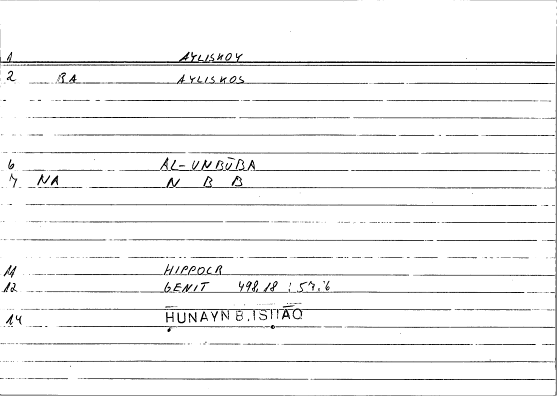 1 AYLISKOY
2 BA AYLISKOS
6 AL-UNBŪBA
7 NA N B B
11 HIPPOCR
12 GENIT 498,18 : 57,6
14 ḤUNAYN B. ISḤĀQ